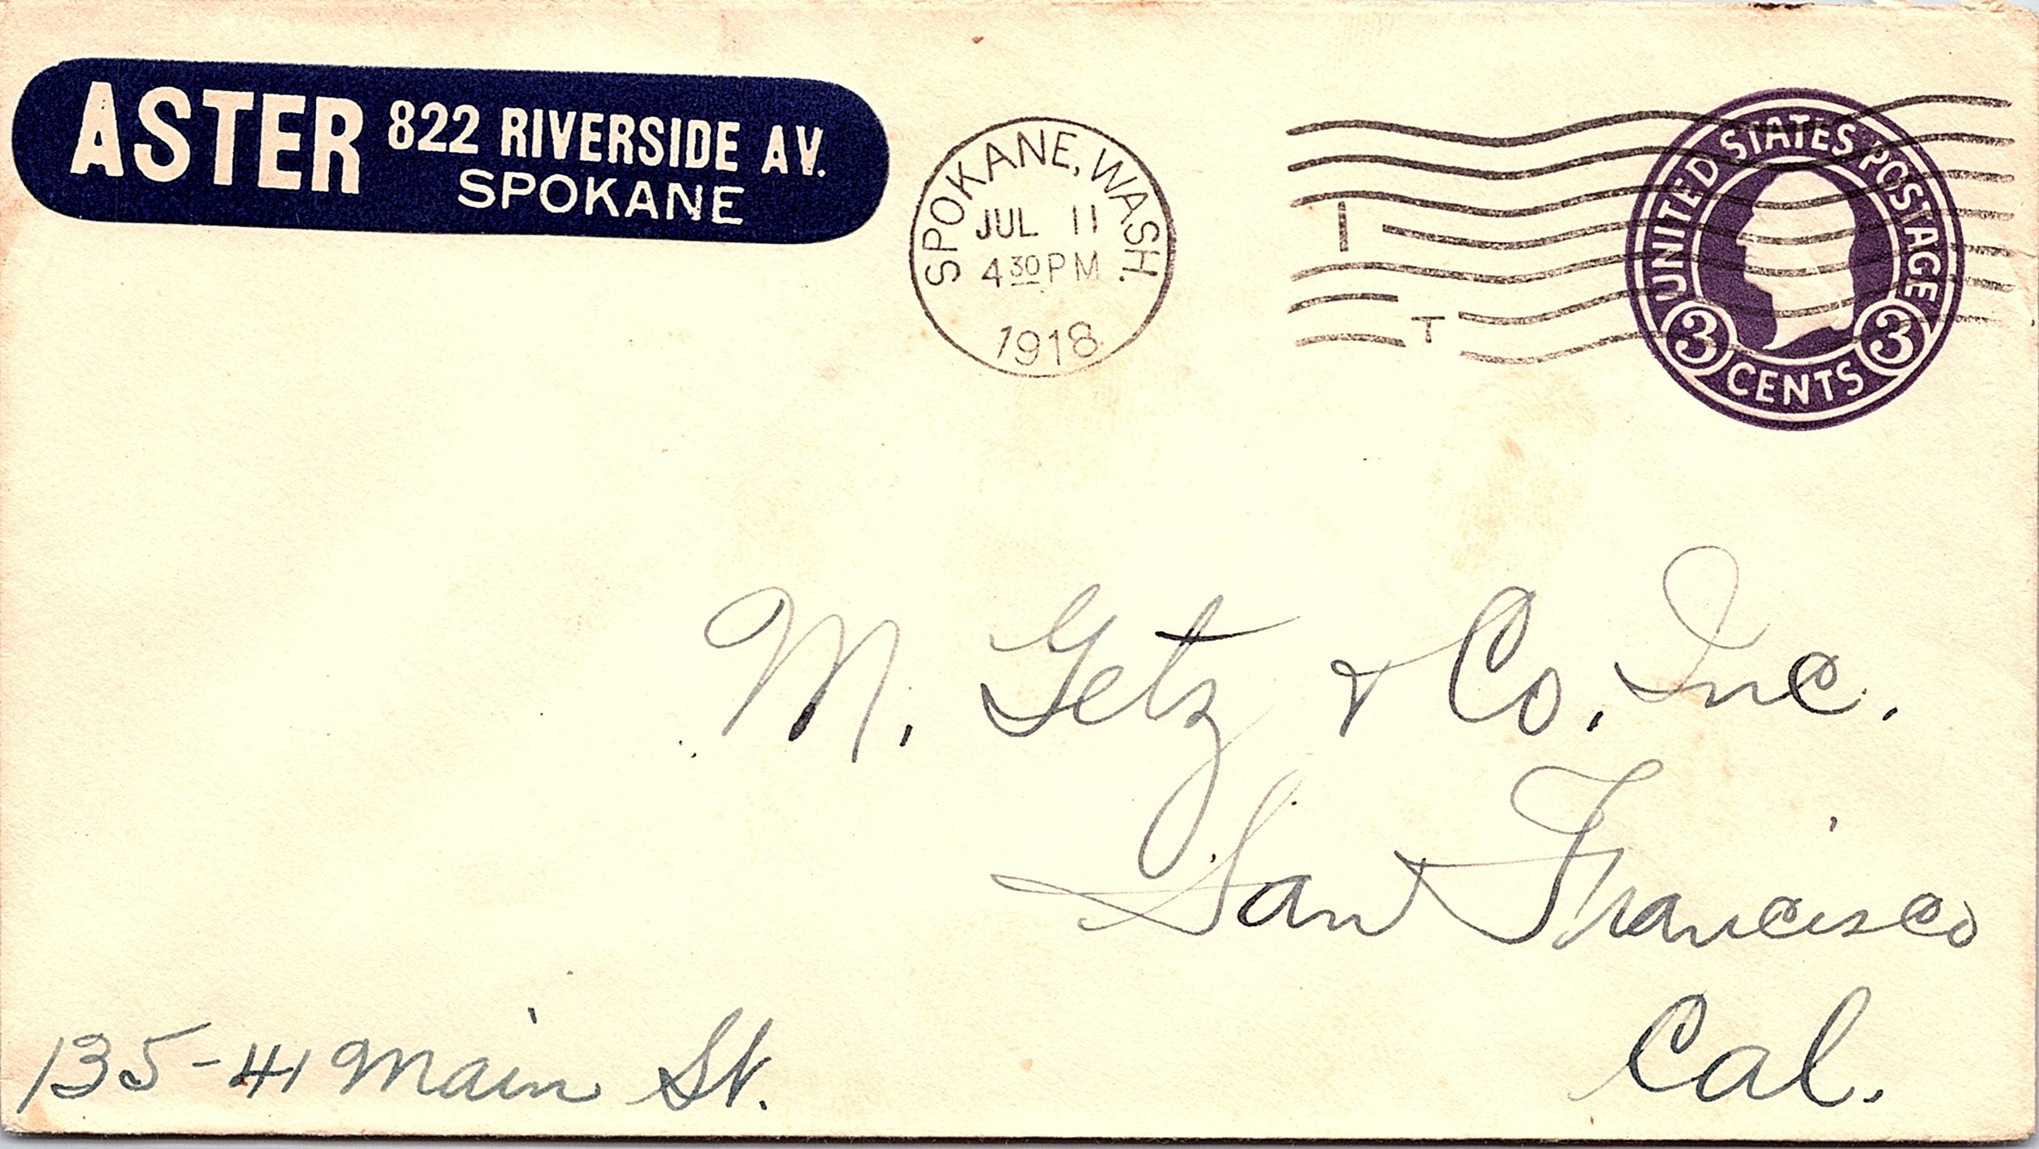 ASTER 822 RIVERSIDE AV.
SPOKANE
SPOKANE, WASH.
JUL 11
4 30 PM
1918
1
T
UNITED STATES POSTAGE
3 CENTS 3
M. Getz & Co. Inc.
San Francisco
Cal.
135-41 Main St.